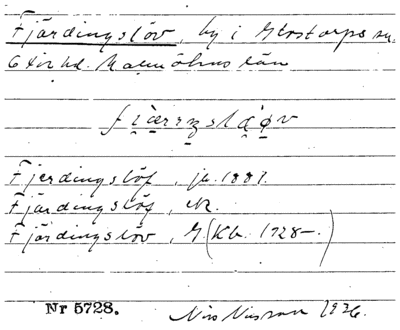 Fjärdingslöv, by i Glostorps sn.
Oxie hd. Malmöhus län
Fjerdingslöf, jb. 1881.
Fjärdingslöf, N.
Fjärdingslöv, G. (Kb. 1728–.)
Nr 5728.
Nils Nilsson 1926.